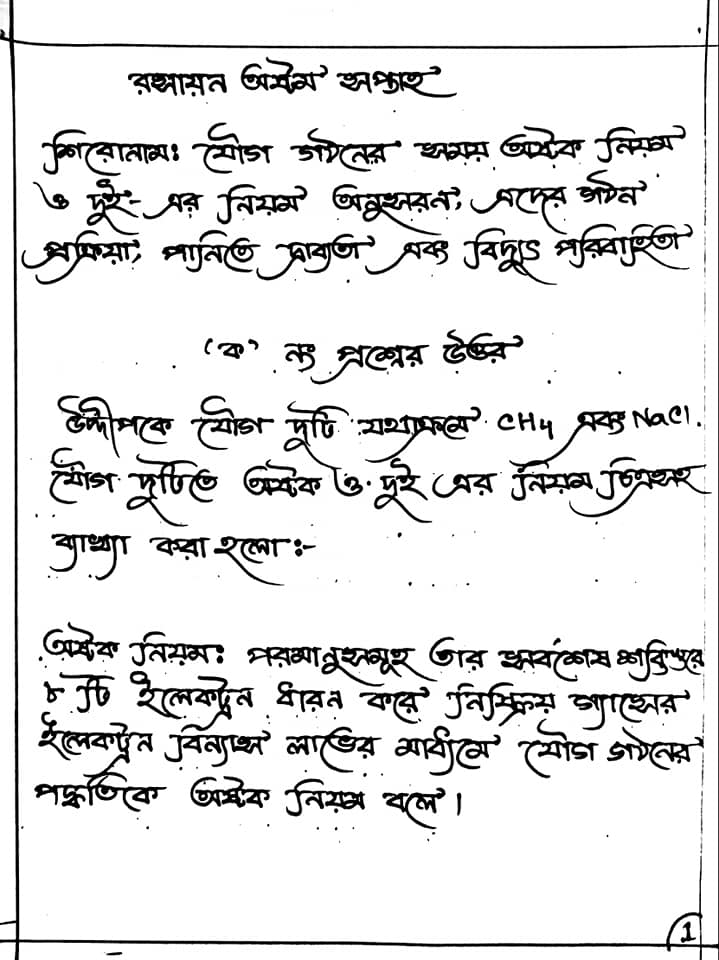 রসায়ন অষ্টম সপ্তাহ
শিরোনামঃ যৌগ গঠনের সময় অষ্টক নিয়ম
ও দুই- এর নিয়ম অনুসরন; এদের গঠন
প্রক্রিয়া; পানিতে দ্রাব্যতা এবং বিদ্যুৎ পরিবাহিতা
'ক' নং প্রশ্নের উত্তর
উদ্দীপকে যৌগ দুটি যথাক্রমে CH4 এবং NaCl.
যৌগ দুটিতে অষ্টক ও দুই এর নিয়ম চিত্রসহ
ব্যাখ্যা করা হলো:-
অষ্টক নিয়মঃ পরমানুসমূহ তার সর্বশেষ শক্তিস্তরে
৮ টি ইলেকট্রন ধারন করে নিষ্ক্রিয় গ্যাসের
ইলেকট্রন বিন্যাস লাভের মাধ্যমে যৌগ গঠনের
পদ্ধতিকে অষ্টক নিয়ম বলে।
1